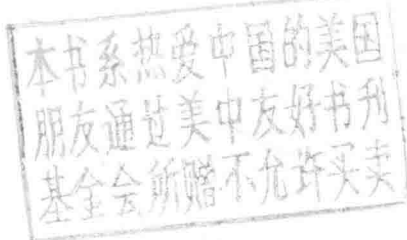 本书系热爱中国的美国
朋友通过美中友好书刊
基金会所赠不允许买卖